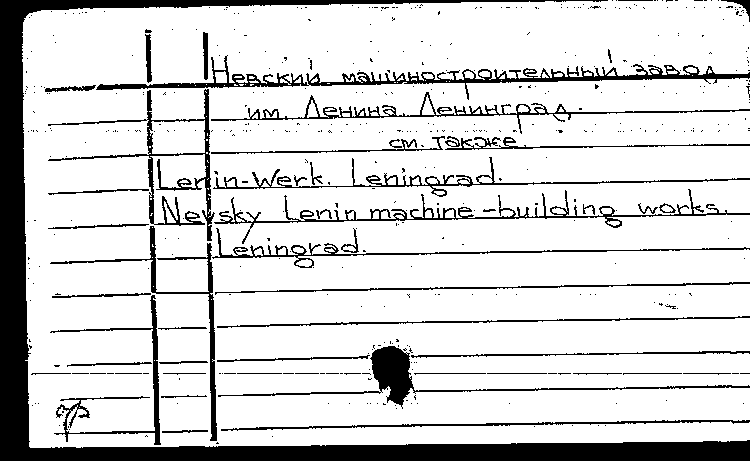 Невский машиностроительный завод
им. Ленина. Ленинград.
см. также
Lenin-Werk. Leningrad.
Nevsky Lenin machine-building works.
Leningrad.